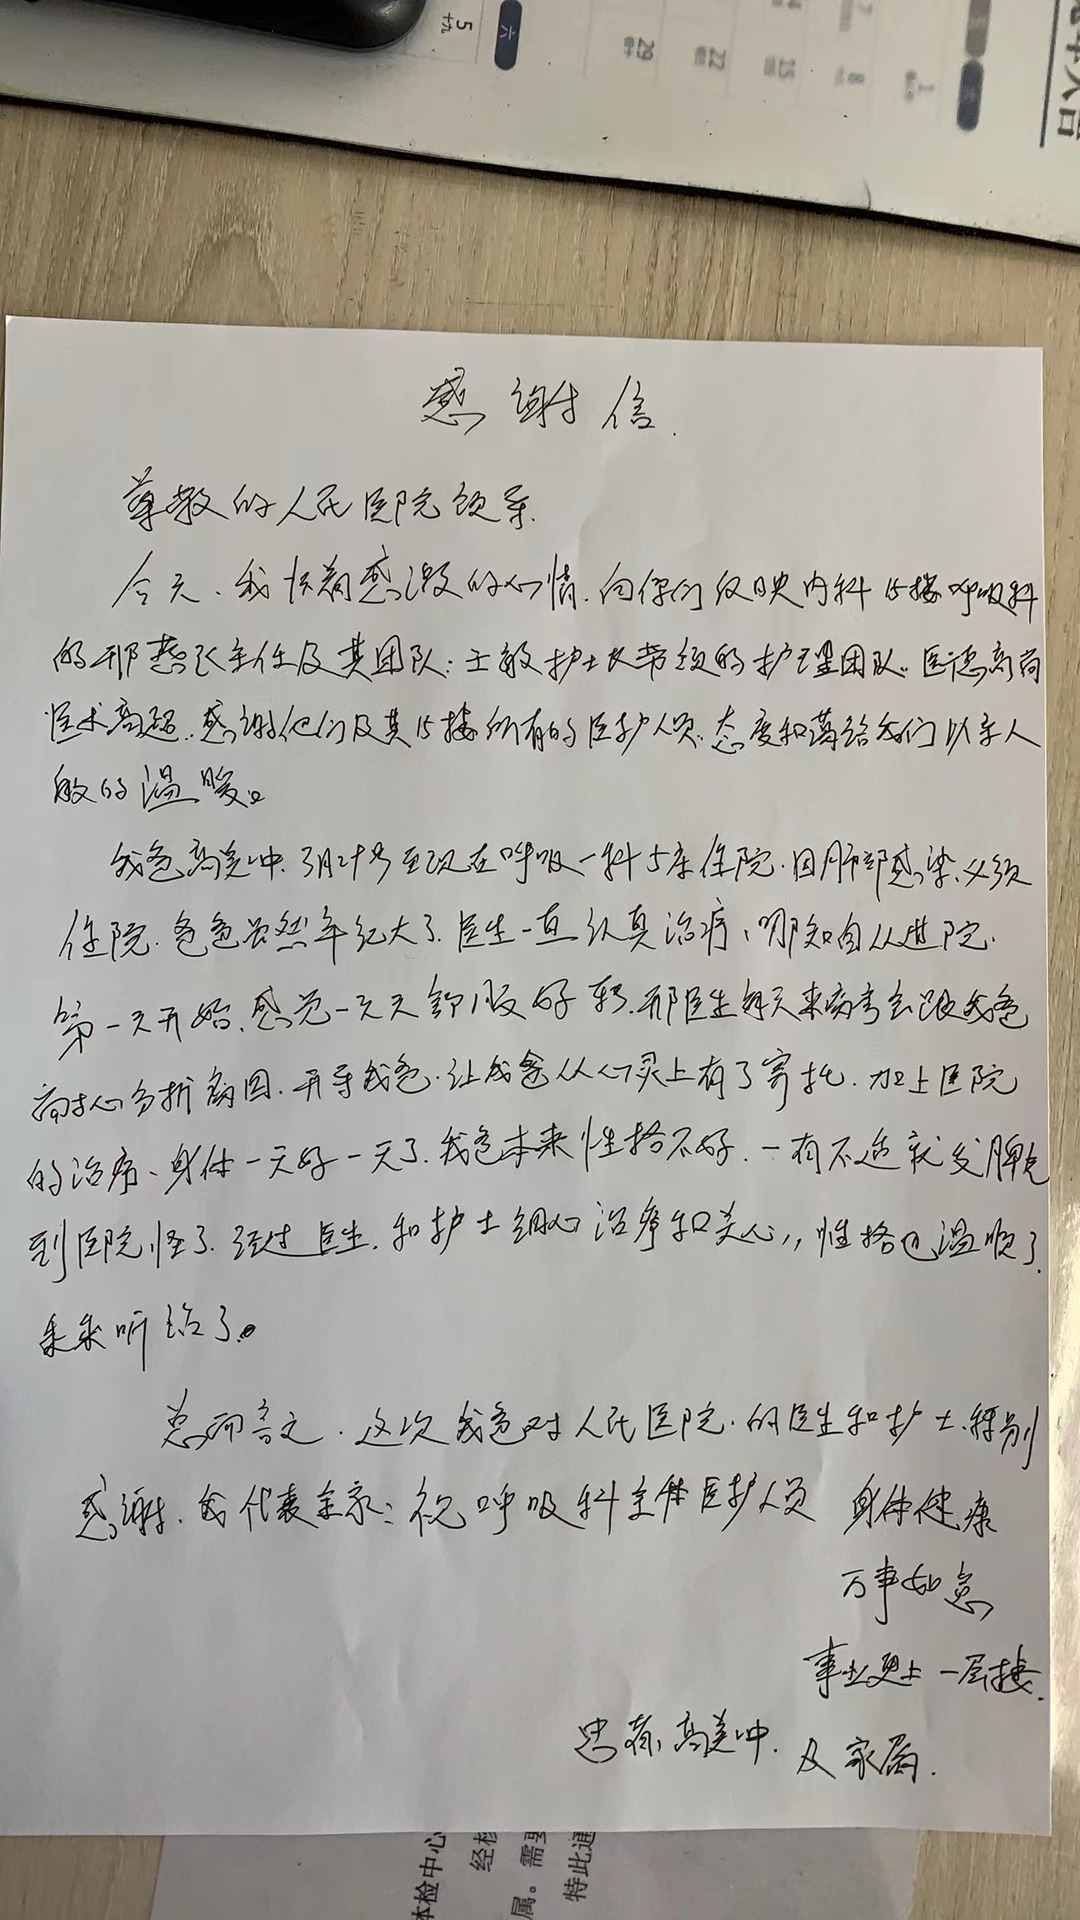 感谢信.
尊敬的人民医院领导.
今天、我怀着感激的心情.向你们反映内科15楼呼吸科
的邢燕飞主任及其团队:王敏护士长带领的护理团队.医德高尚
医术高超.感谢他们及其15楼所有的医护人员.态度和蔼给我们以亲人
般的温暖。
我爸高美冲.3月29号至现在呼吸一科5床住院.因肺部感染.必须
住院.爸爸虽然年纪大了.医生一直认真治疗、哪知自从进院.
第一天开始.感觉一天天舒服好转.邢医生每天来病房会跟我爸
耐心分析病因.开导我爸.让我爸从心灵上有了寄托.加上医院
的治病、身体一天好一天了.我爸本来性格不好.一有不适就发脾气
到医院怪了.经过医生.和护士细心治疗和关心,,性格也温顺了.
乖乖听话了。
总而言之.这次我爸对人民医院.的医生和护士.特别
感谢.我代表全家:祝呼吸科全体医护人员 身体健康
万事如意
事业更上一层楼.
患者:高美冲.及家属.
5
十九
六
29
22
15
8
1
体检中心
经
属。需
特此通